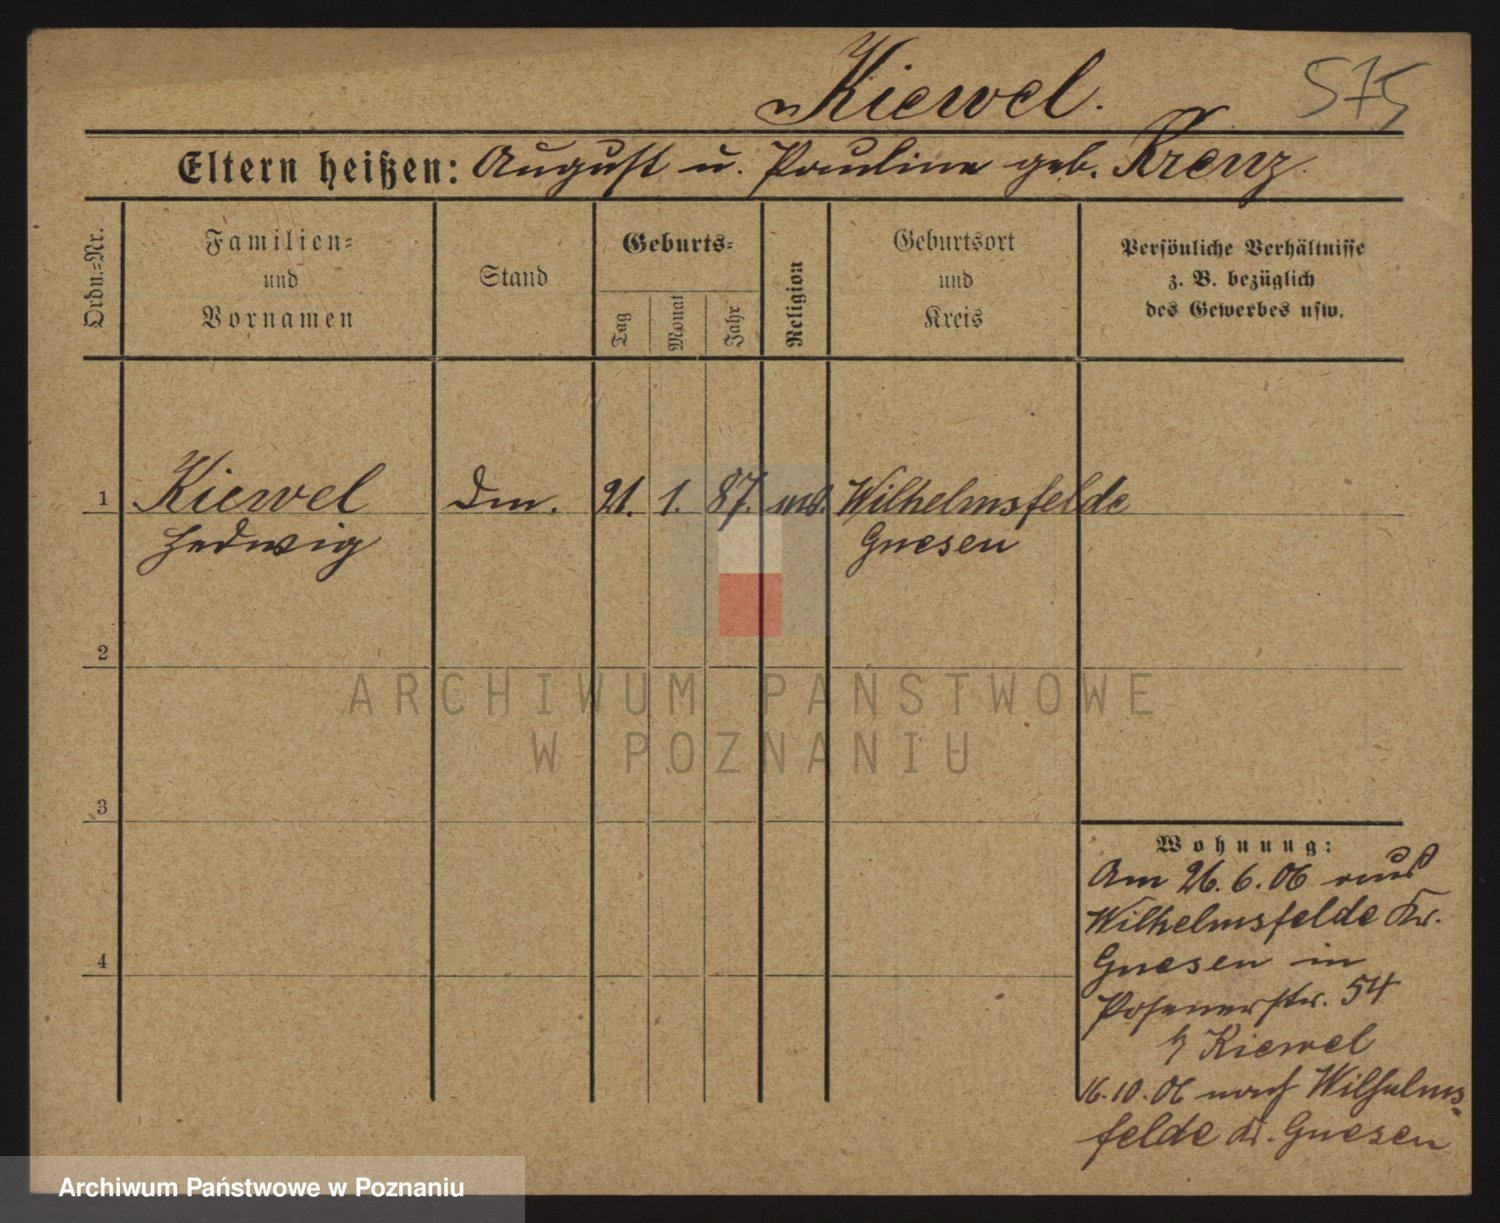 Kiewel.
575
Eltern heißen: August u. Pauline geb. Krenz.
Ordn.-Nr.
Familien-
und
Vornamen
Stand
Geburts-
Tag
Monat
Jahr
Religion
Geburtsort
und
Kreis
Persönliche Verhältnisse
z. B. bezüglich
des Gewerbes usw.
1 Kiewel 21. 1. 87. Wilhelmsfelde
Hedwig Gnesen
2
ARCHIWUM PAŃSTWOWE
W POZNANIU
3
Wohnung:
Am 26. 6. 06 aus
Wilhelmsfelde Kr.
4
Gnesen in
Posenerstr. 54
Kiewel
16. 10. 06 nach Wilhelms-
felde Kr. Gnesen
Archiwum Państwowe w Poznaniu